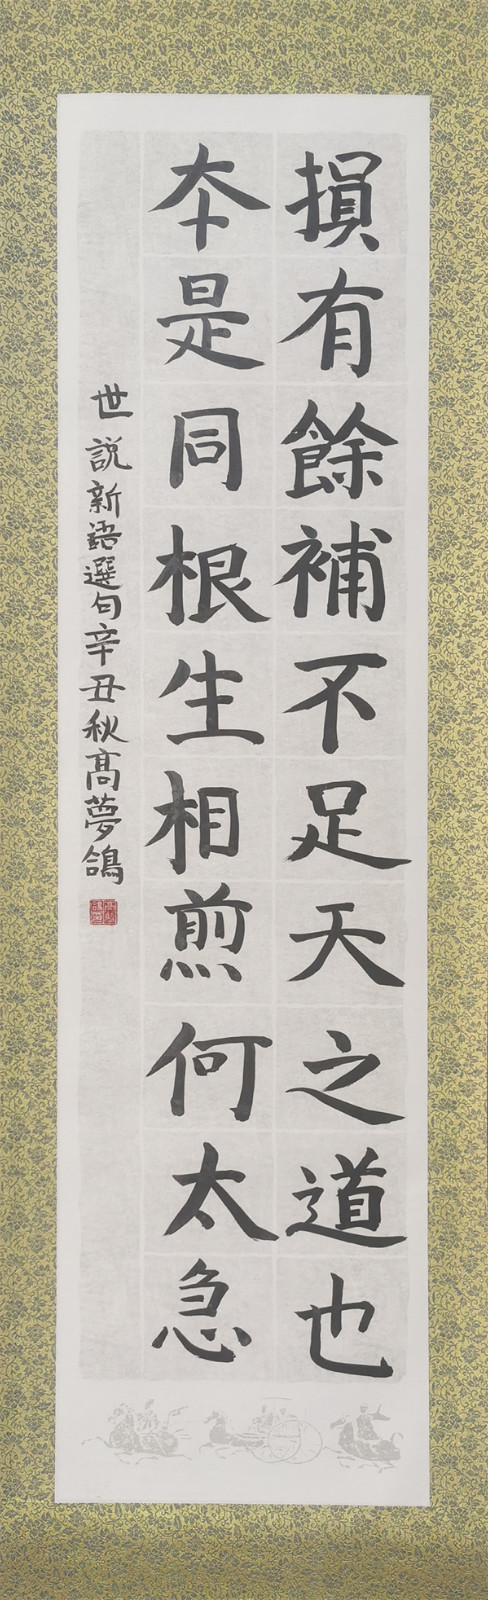 損有餘補不足天之道也
本是同根生相煎何太急
世説新語選句辛丑秋高夢鴿